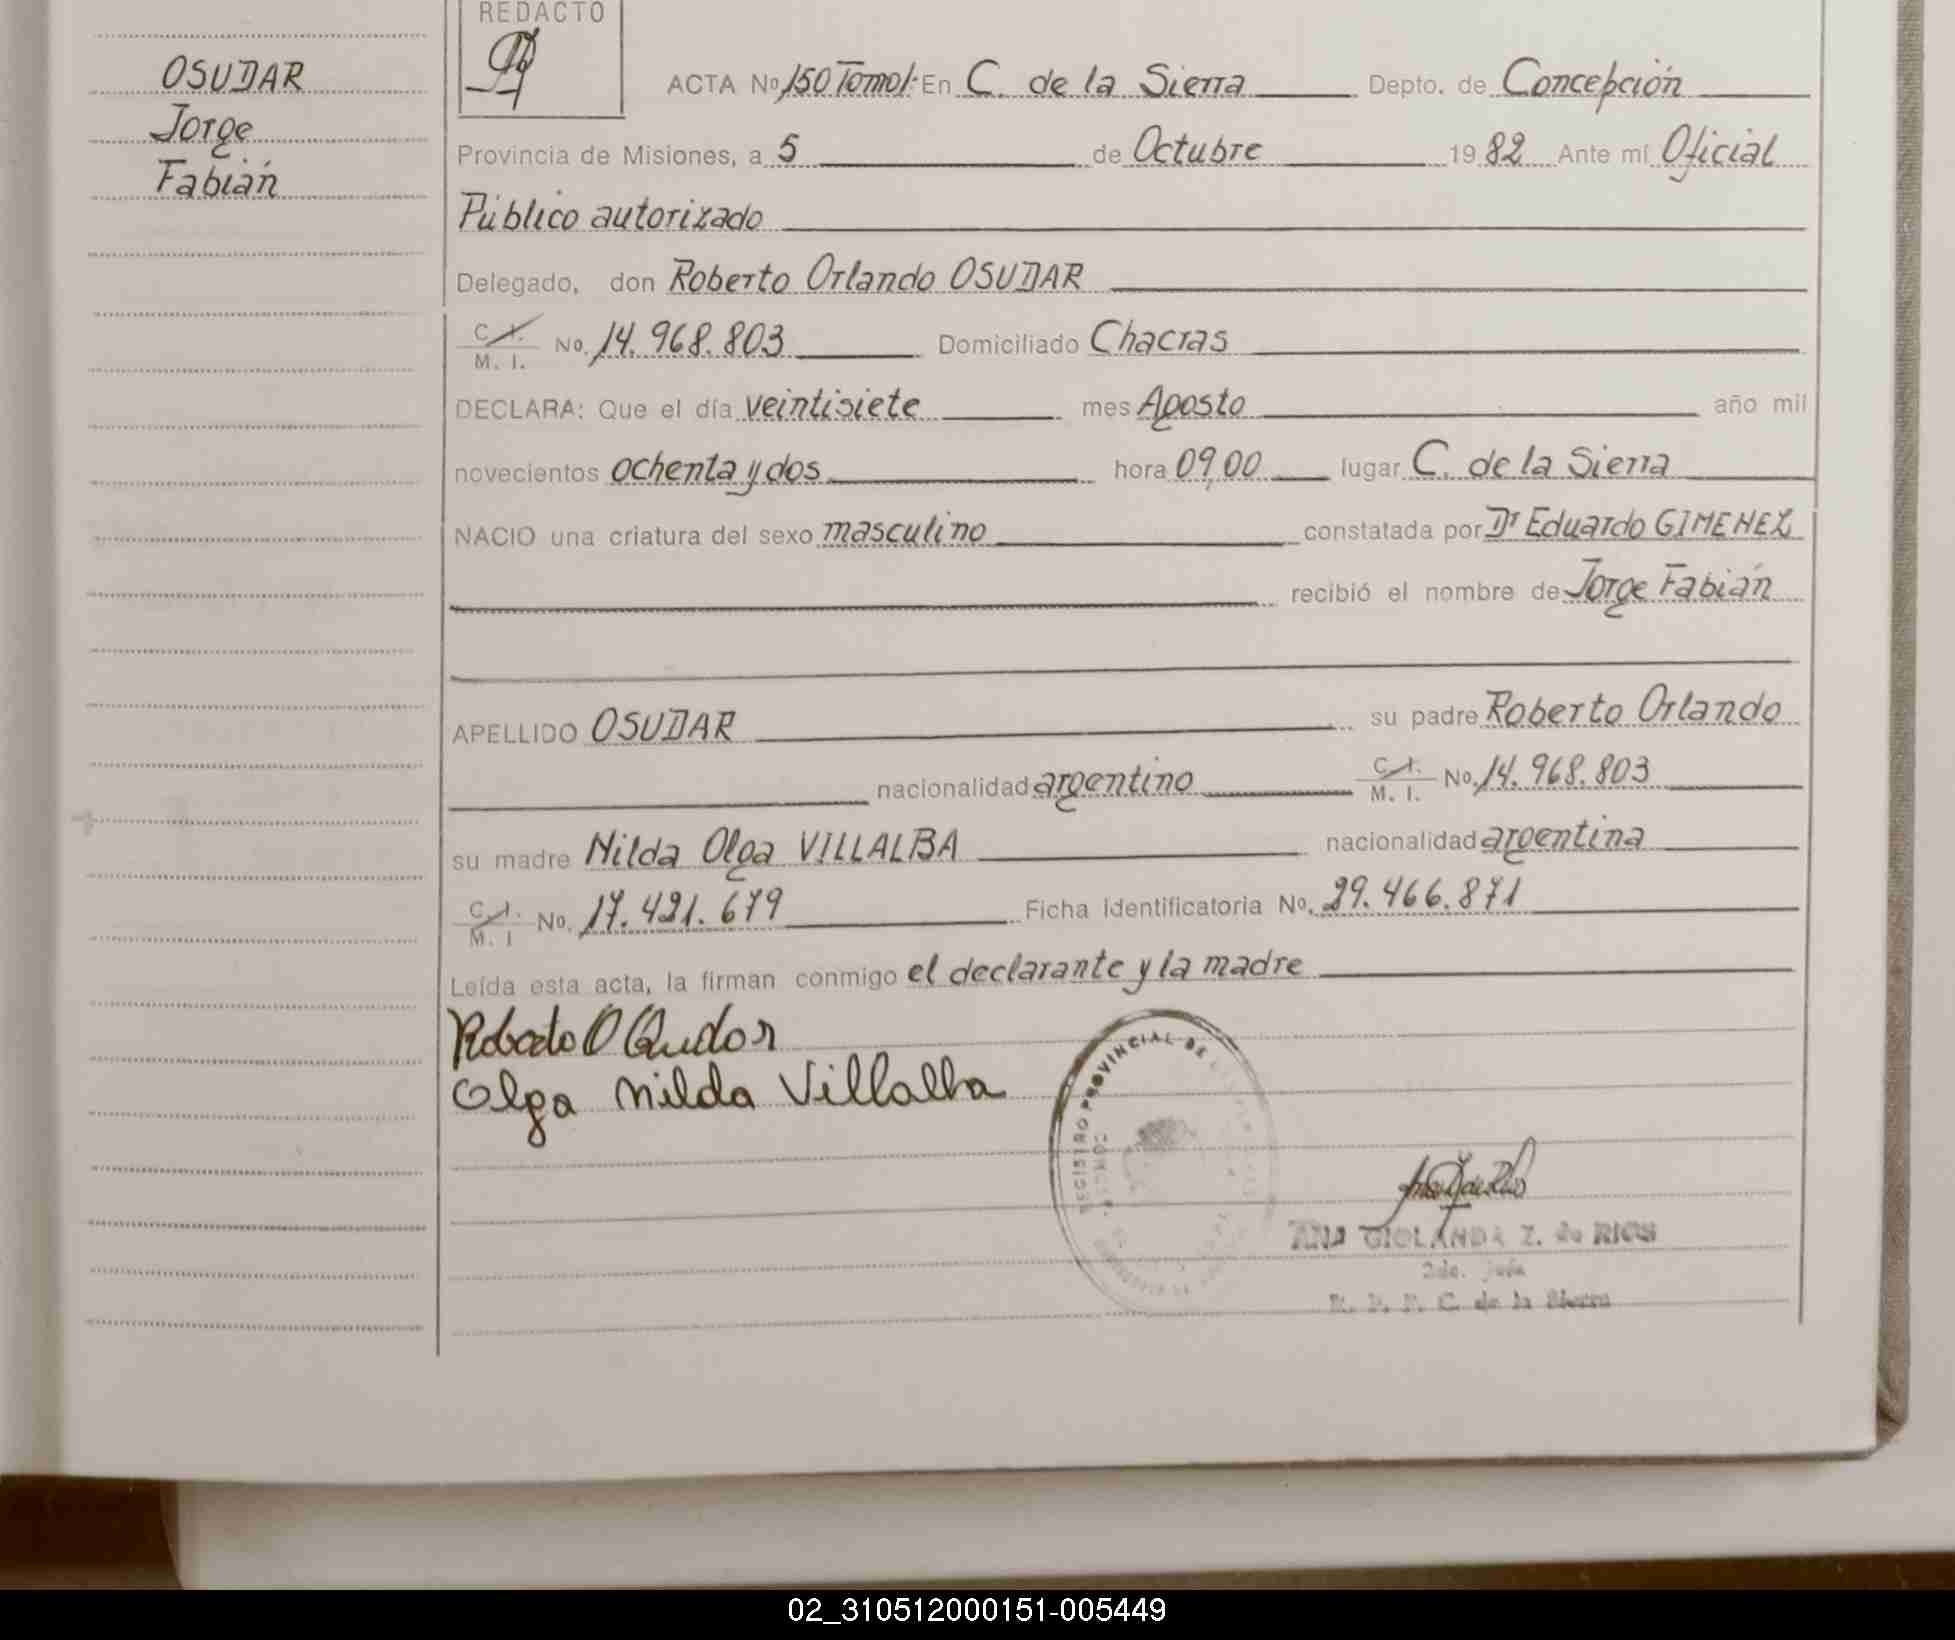 REDACTO
OSUDAR
Jorge
Fabián
ACTA No 150 Tomo I. En C. de la Sierra Depto. de Concepción
Provincia de Misiones, a 5 de Octubre 1982 Ante mí Oficial
Público autorizado
Delegado, don Roberto Orlando OSUDAR
C. I. / M. I. No. 14.968.803 Domiciliado Chacras
DECLARA: Que el día veintisiete mes Agosto año mil
novecientos ochenta y dos hora 09,00 lugar C. de la Sierra
NACIO una criatura del sexo masculino constatada por Dr Eduardo GIMENEZ
recibió el nombre de Jorge Fabián
APELLIDO OSUDAR su padre Roberto Orlando
nacionalidad argentino C. I. / M. I. No. 14.968.803
su madre Nilda Olga VILLALBA nacionalidad argentina
C. I. / M. I No. 17.421.679 Ficha identificatoria No. 29.466.871
Leída esta acta, la firman conmigo el declarante y la madre
Roberto O Osudar
Olga Nilda Villalba
REGISTRO PROVINCIAL DE
ANA GIOLANDA Z. de RIOS
2do. Jefe
R. P. P. C. de la Sierra
02_310512000151-005449